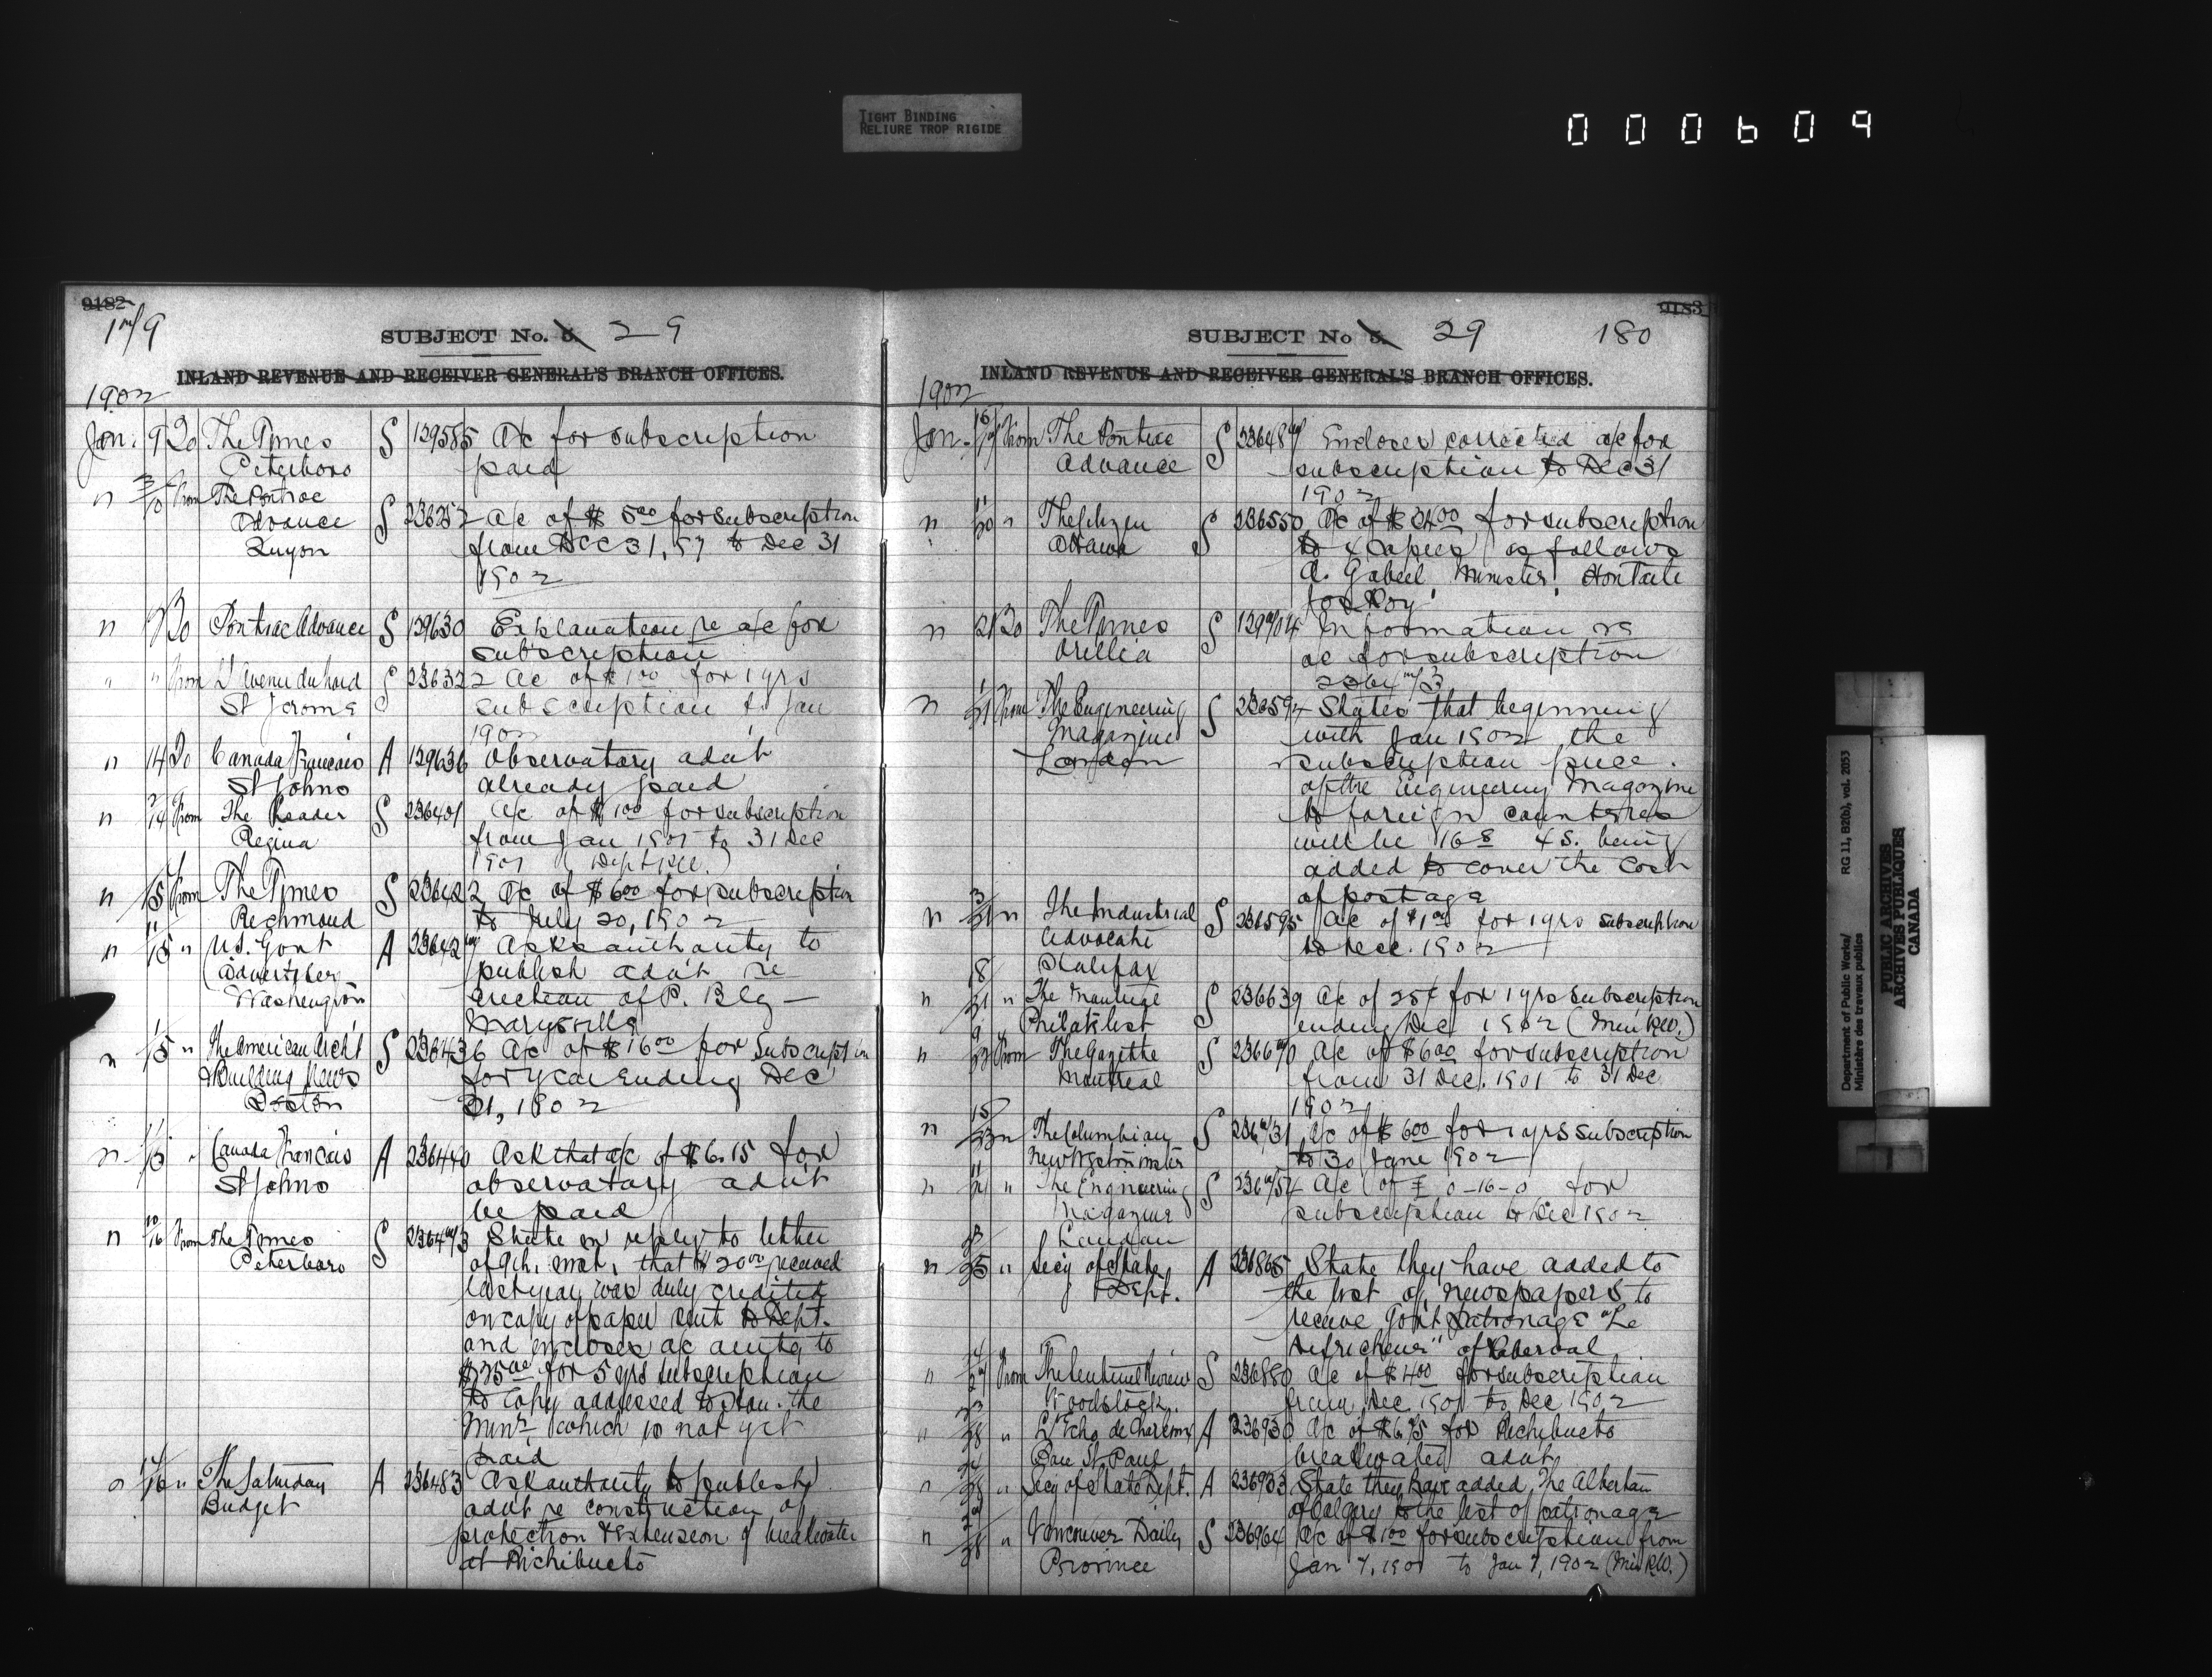 TIGHT BINDING
RELIURE TROP RIGIDE
000609
9182
179
SUBJECT No. 5. 29
INLAND REVENUE AND RECEIVER GENERAL'S BRANCH OFFICES.
1902
Jan. 9 Do The Times S 129585 A/c for subscription
Peterboro paid
" From The Pontiac
Advance S 236252 A/c of $5.00 for subscription
Quyon from Dec 31, 97 to Dec 31
1902
" Do Pontiac Advance S 129630 Explanation re a/c for
subscription
" " From L'Avenir du Nord S 236322 A/c of $1.00 for 1 yrs
St Jerome subscription to Jan
1902
" 14 Do Canada Francais A 129636 Observatory advt
St Johns already paid
" 14 From The Leader S 236401 A/c of $1.00 for subscription
Regina from Jan 1901 to 31 Dec
1901
" 15 From The Times S 236422 A/c of $6.00 for subscription
Richmond to July 20, 1902
" 15 " U.S. Govt A 236427 Asks authority to
Advertiser publish advt. re
Washington erection of P. Blg -
Marysville
" 15 " The American Archt S 236436 A/c of $16.00 for subscription
& Building News for year ending Dec
Boston 31, 1902
" 15 " Canada Francais A 236440 Ask that a/c of $6.15 for
St Johns observatory advt
be paid
" 10/16 From The Times S 236473 State in reply to letter
Peterboro of 9th. inst, that $20.00 received
last year was duly credited
on copy of paper sent to Dept.
and encloses a/c amtg to
$25.00 for 5 yrs subscription
to copy addressed to Hon. the
Minr, which is not yet
paid
" 16 " The Saturday A 236483 Ask authority to publish
Budget advt re construction of
protection & extension of breakwater
at Richibucto
9183
SUBJECT No 5. 29 180
INLAND REVENUE AND RECEIVER GENERAL'S BRANCH OFFICES.
1902
Jan. From The Pontiac S 236487 Encloses corrected a/c for
Advance subscription to Dec 31
1902
" 11/20 " The Citizen S 236550 A/c of $24.00 for subscription
Ottawa to 4 copies as follows
A. Gobeil, Minister, Hon Tarte
Jos Roy
" 21 Do The Times S 129704 Information re
Orillia a/c for subscription
236473
" 1/21 From The Engineering S 236594 States that beginning
Magazine with Jan 1902 the
London subscription price
of the Engineering Magazine
to foreign countries
will be 16s 4s. being
added to cover the cost
of postage
" 3/21 " The Industrial S 236595 A/c of $1.00 for 1 yrs subscription
Advocate to Dec. 1902
Halifax
" 18/21 " The S 236639 A/c of 25¢ for 1 yrs subscription
Philatelist ending Dec 1902 (Min P.W.)
" 9 From The Gazette S 236670 A/c of $6.00 for subscription
Montreal from 31 Dec. 1901 to 31 Dec
1902
" 15/23 " The Columbian S 236731 A/c of $6.00 for 1 yrs subscription
New Westminster to 30 June 1902
" 11 " The Engineering S 236754 A/c of £ 0-16-0 for
Magazine subscription to Dec 1902
London
" 25 " Secy of State A 236865 State they have added to
Dept. the list of newspapers to
receive Govt patronage "Le
Defricheur" of Roberval
" 27 From The Sentinel Review S 236880 A/c of $4.00 for subscription
Woodstock. from Dec 1901 to Dec 1902
" 28 " L'Echo de Charlevoix A 236930 A/c of $6.75 for Richibucto
Baie St Paul breakwater advt
" 28 " Secy of State Dept. A 236933 State they have added The Albertan
of Calgary to the list of patronage
" 28 " Vancouver Daily S 236964 A/c of $1.00 for subscription from
Province Jan 7, 1901 to Jan 7, 1902 (Min P.W.)
Department of Public Works/
Ministère des travaux publics
RG 11, B2(b), vol. 2053
PUBLIC ARCHIVES
ARCHIVES PUBLIQUES
CANADA